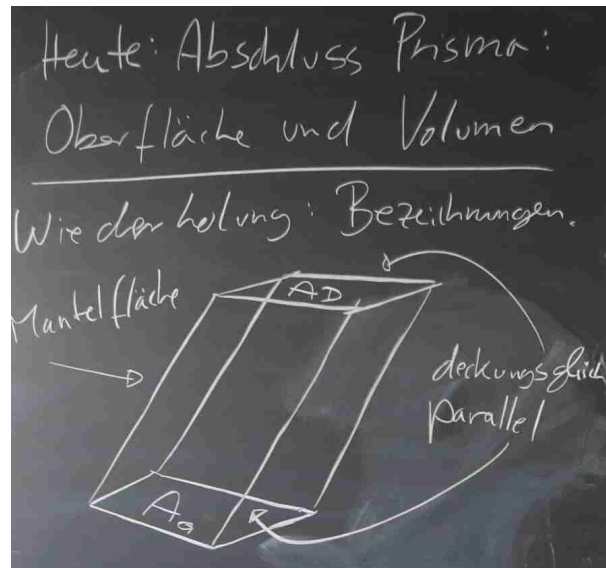 Heute: Abschluss Prisma:
Oberfläche und Volumen
Wiederholung: Bezeichnungen.
Mantelfläche
AD
deckungsgleich
parallel
AG